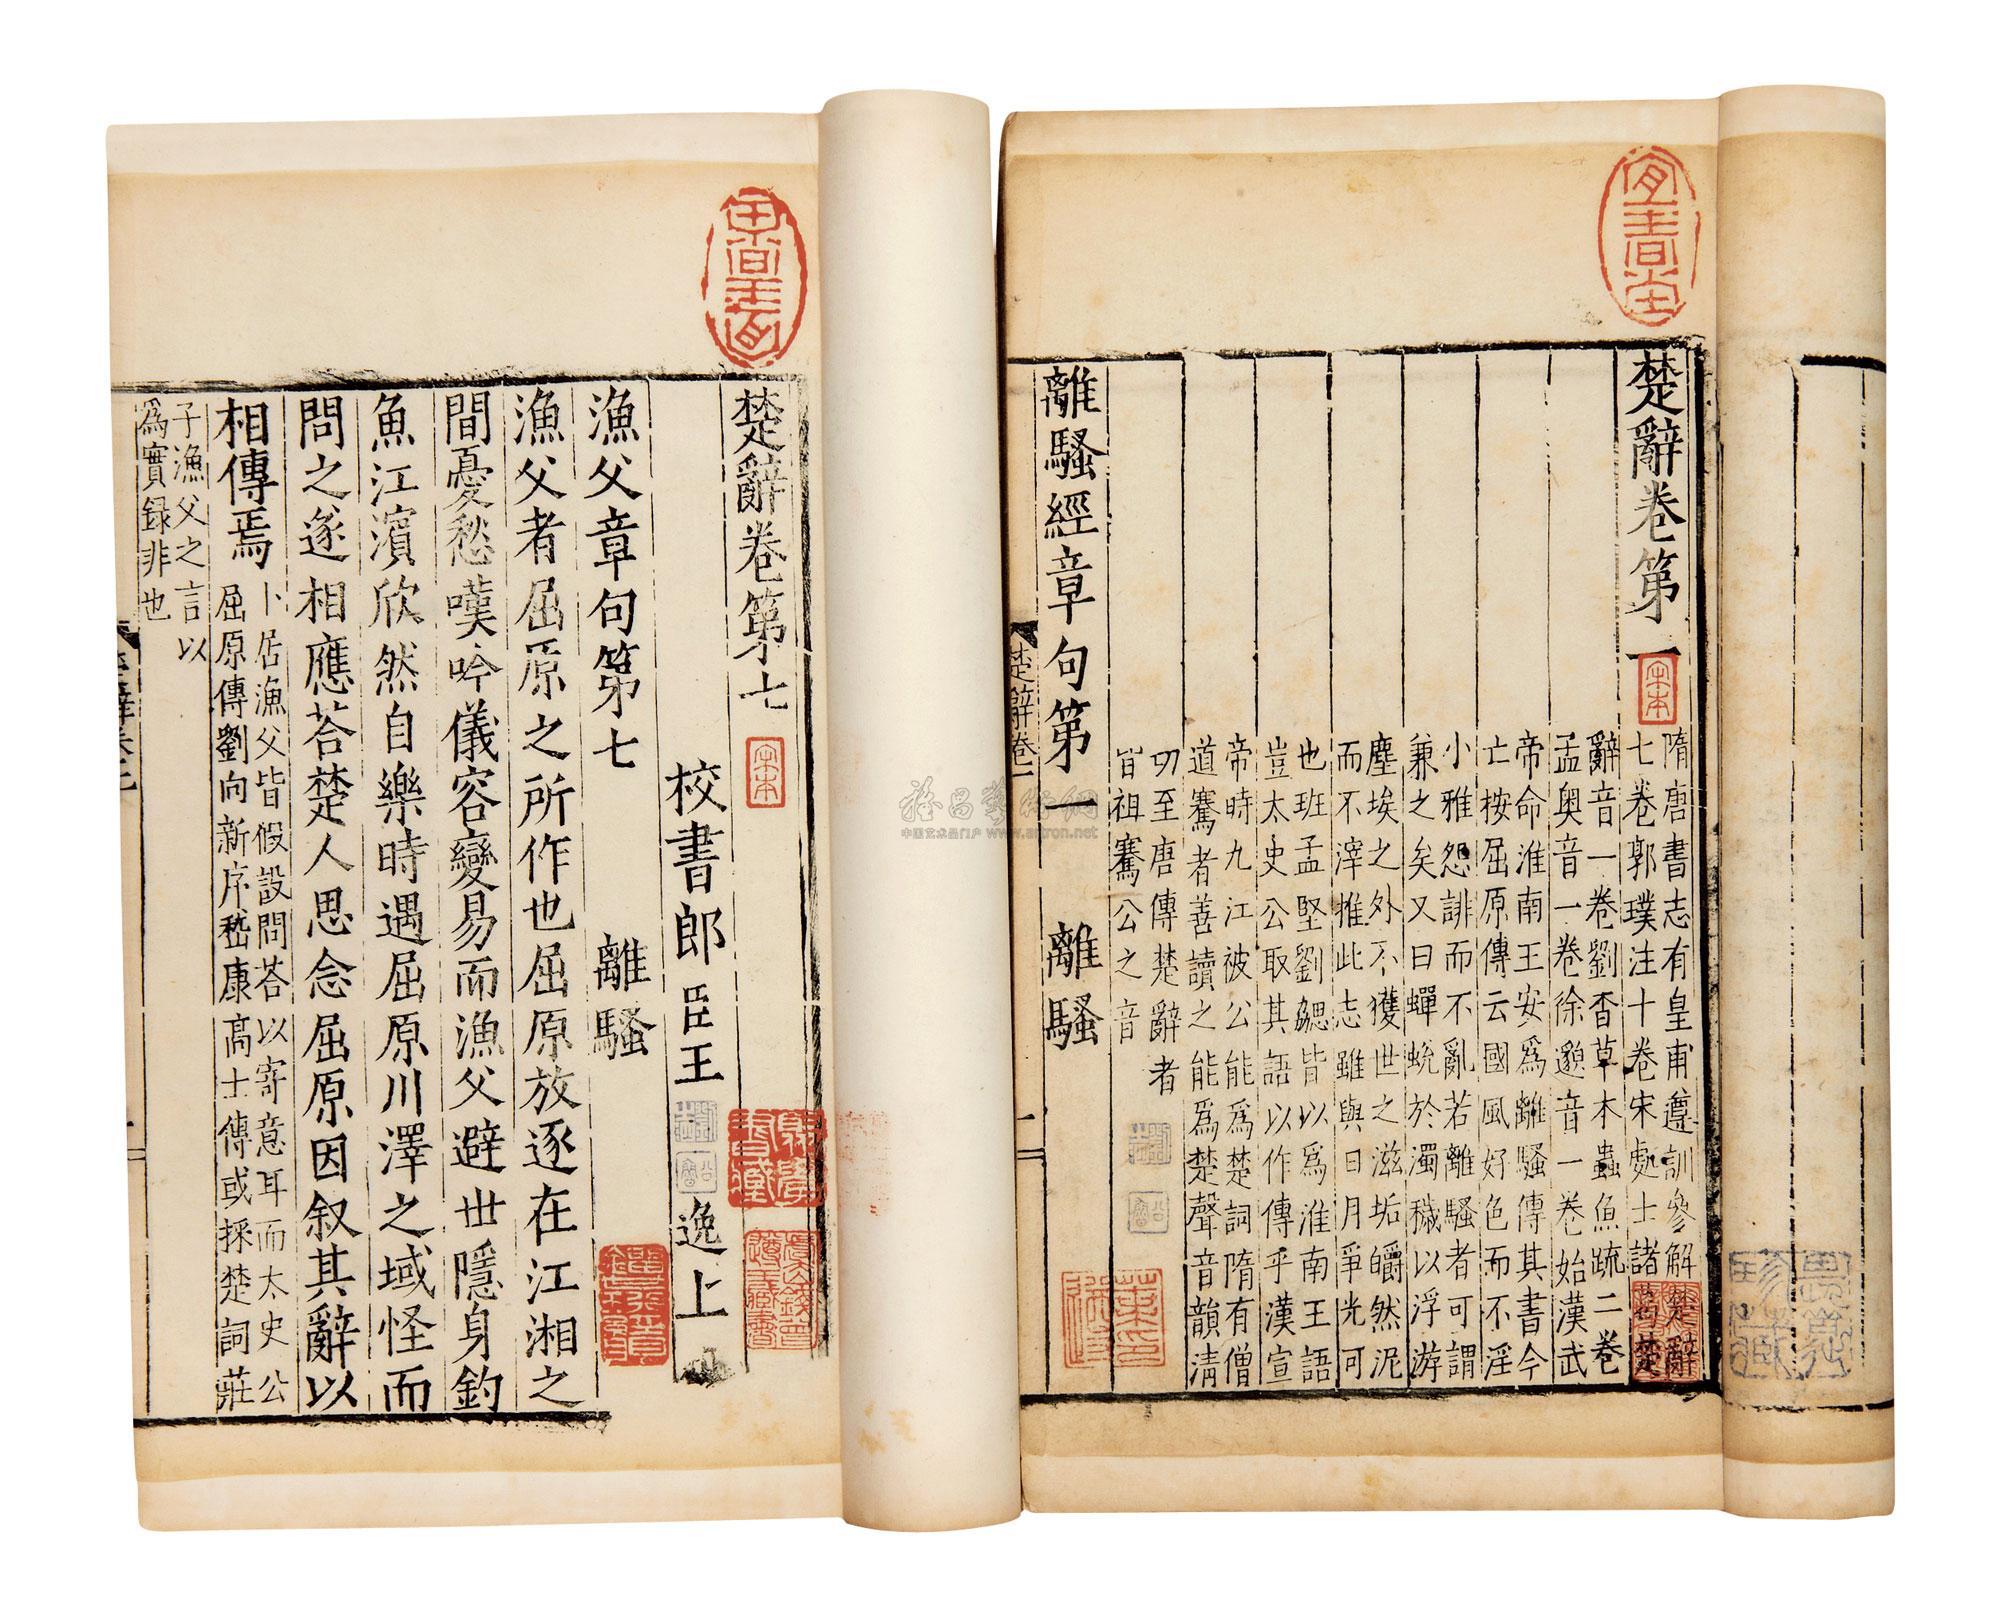 楚辭卷第一
宋本
隋唐書志有皇甫遵訓參解楚辭
七卷郭璞注十卷宋處士諸葛楚
辭音一卷劉杳草木蟲魚疏二卷
孟奧音一卷徐邈音一卷始漢武
帝命淮南王安爲離騷傳其書今
亡按屈原傳云國風好色而不淫
小雅怨誹而不亂若離騷者可謂
兼之矣又曰蟬蛻於濁穢以浮游
塵埃之外不獲世之滋垢皭然泥
而不滓推此志雖與日月爭光可
也班孟堅劉勰皆以爲淮南王語
豈太史公取其語以作傳乎漢宣
帝時九江被公能爲楚詞隋有僧
道騫者善讀之能爲楚聲音韻清
切至唐傳楚辭者
皆祖騫公之音
離騷經章句第一 離騷
楚辭卷一
楚辭卷第七
宋本
校書郎臣王逸上
漁父章句第七 離騷
漁父者屈原之所作也屈原放逐在江湘之
間憂愁嘆吟儀容變易而漁父避世隱身釣
魚江濱欣然自樂時遇屈原川澤之域怪而
問之遂相應荅楚人思念屈原因叙其辭以
相傳焉
卜居漁父皆假設問荅以寄意耳而太史公
屈原傳劉向新序嵇康高士傳或採楚詞莊
子漁父之言以
爲實録非也
雅昌藝術網
中国艺术品门户 www.artron.net